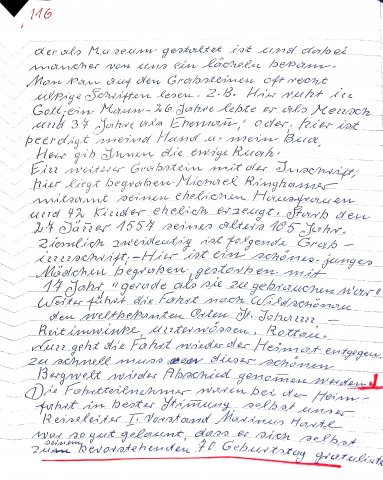 116
der als Museum gestaltet ist und dabei
mancher von uns ein lächeln bekam.
Man kan auf den Grabsteinen oft recht
ulkige Schriften lesen. z.B. Hier ruht in
Gott, ein Mann - 26 Jahre lebte er als Mensch
und 37 Jahre als Ehemann; oder, hier ist
beerdigt meind Hund u. mein Bua,
Herr gib Innen die ewige Ruah.
Ein weiterer Grabstein mit der Inschrift;
hier liegt begraben Michael Ringhamer
mitsamt seinen ehelichen Hausfrauen
und 42 Kinder ehelich erzeugt. Starb den
27 Jäner 1557 seines alters 105 Jahre.
Ziemlich zweideutig ist folgende Grab-
innschrift, - Hier ist ein schönes junges
Mädchen begraben, gestorben mit
17 Jahr, "gerade als sie zu gebrauchen war".
Weiter führt die Fahrt nach Wildschönau
den weltbekanten Orten St. Johann
Reitimwinke, unterwössen, Rottau.
Nun geht die Fahrt wieder der Heimat entgegen,
zu schnell muss dieser schönen
Bergwelt wieder Abschied genomen werden
Die Fahrtteilnehmer waren bei der Heim-
fahrt in bester Stimung selbst unser
Reiseleiter II. Vorstand Marinus Hartl
war so gut gelaunt, dass er sich selbst
zu seinem bevorstehenden 70 Geburtstag gratulirte